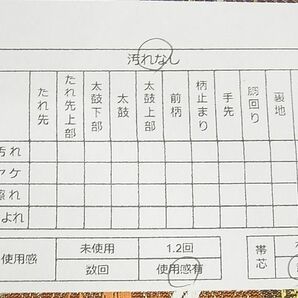 汚れなし
たれ先 たれ先上部 太鼓下部 太鼓 太鼓上部 前柄 柄止まり 手先 胴回り 裏地
汚れ
ヤケ
擦れ
よれ
使用感 未使用 1.2回
数回 使用感有
帯芯